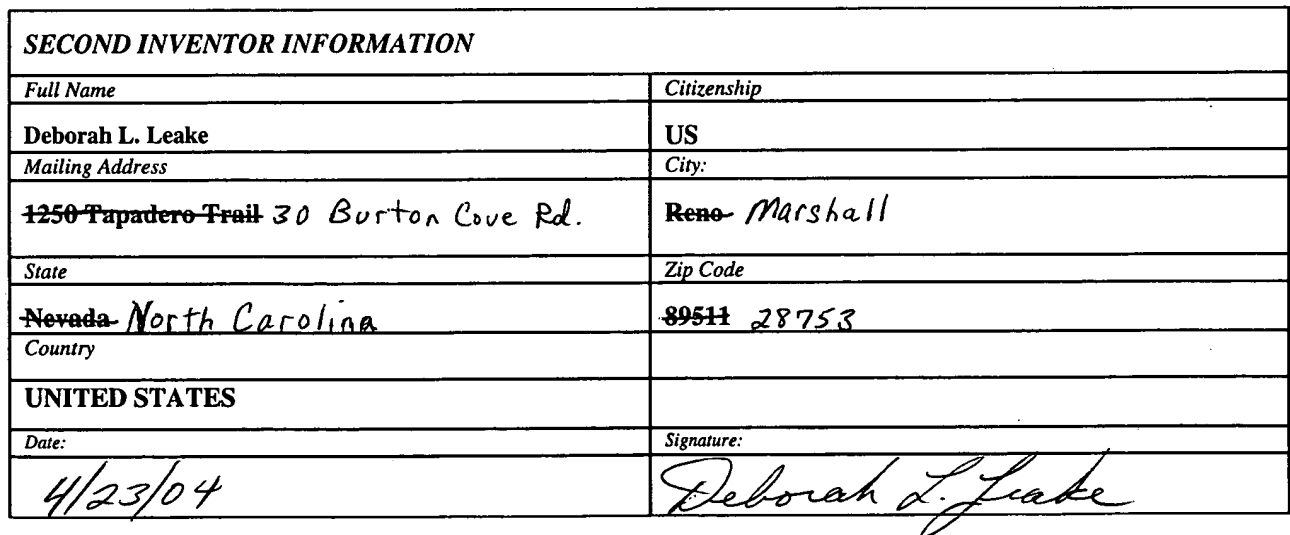 SECOND INVENTOR INFORMATION
Full Name Citizenship
Deborah L. Leake US
Mailing Address City:
1250 Tapadero Trail 30 Burton Cove Rd. Reno Marshall
State Zip Code
Nevada North Carolina 89511 28753
Country
UNITED STATES
Date: Signature:
4/23/04 Deborah L. Leake